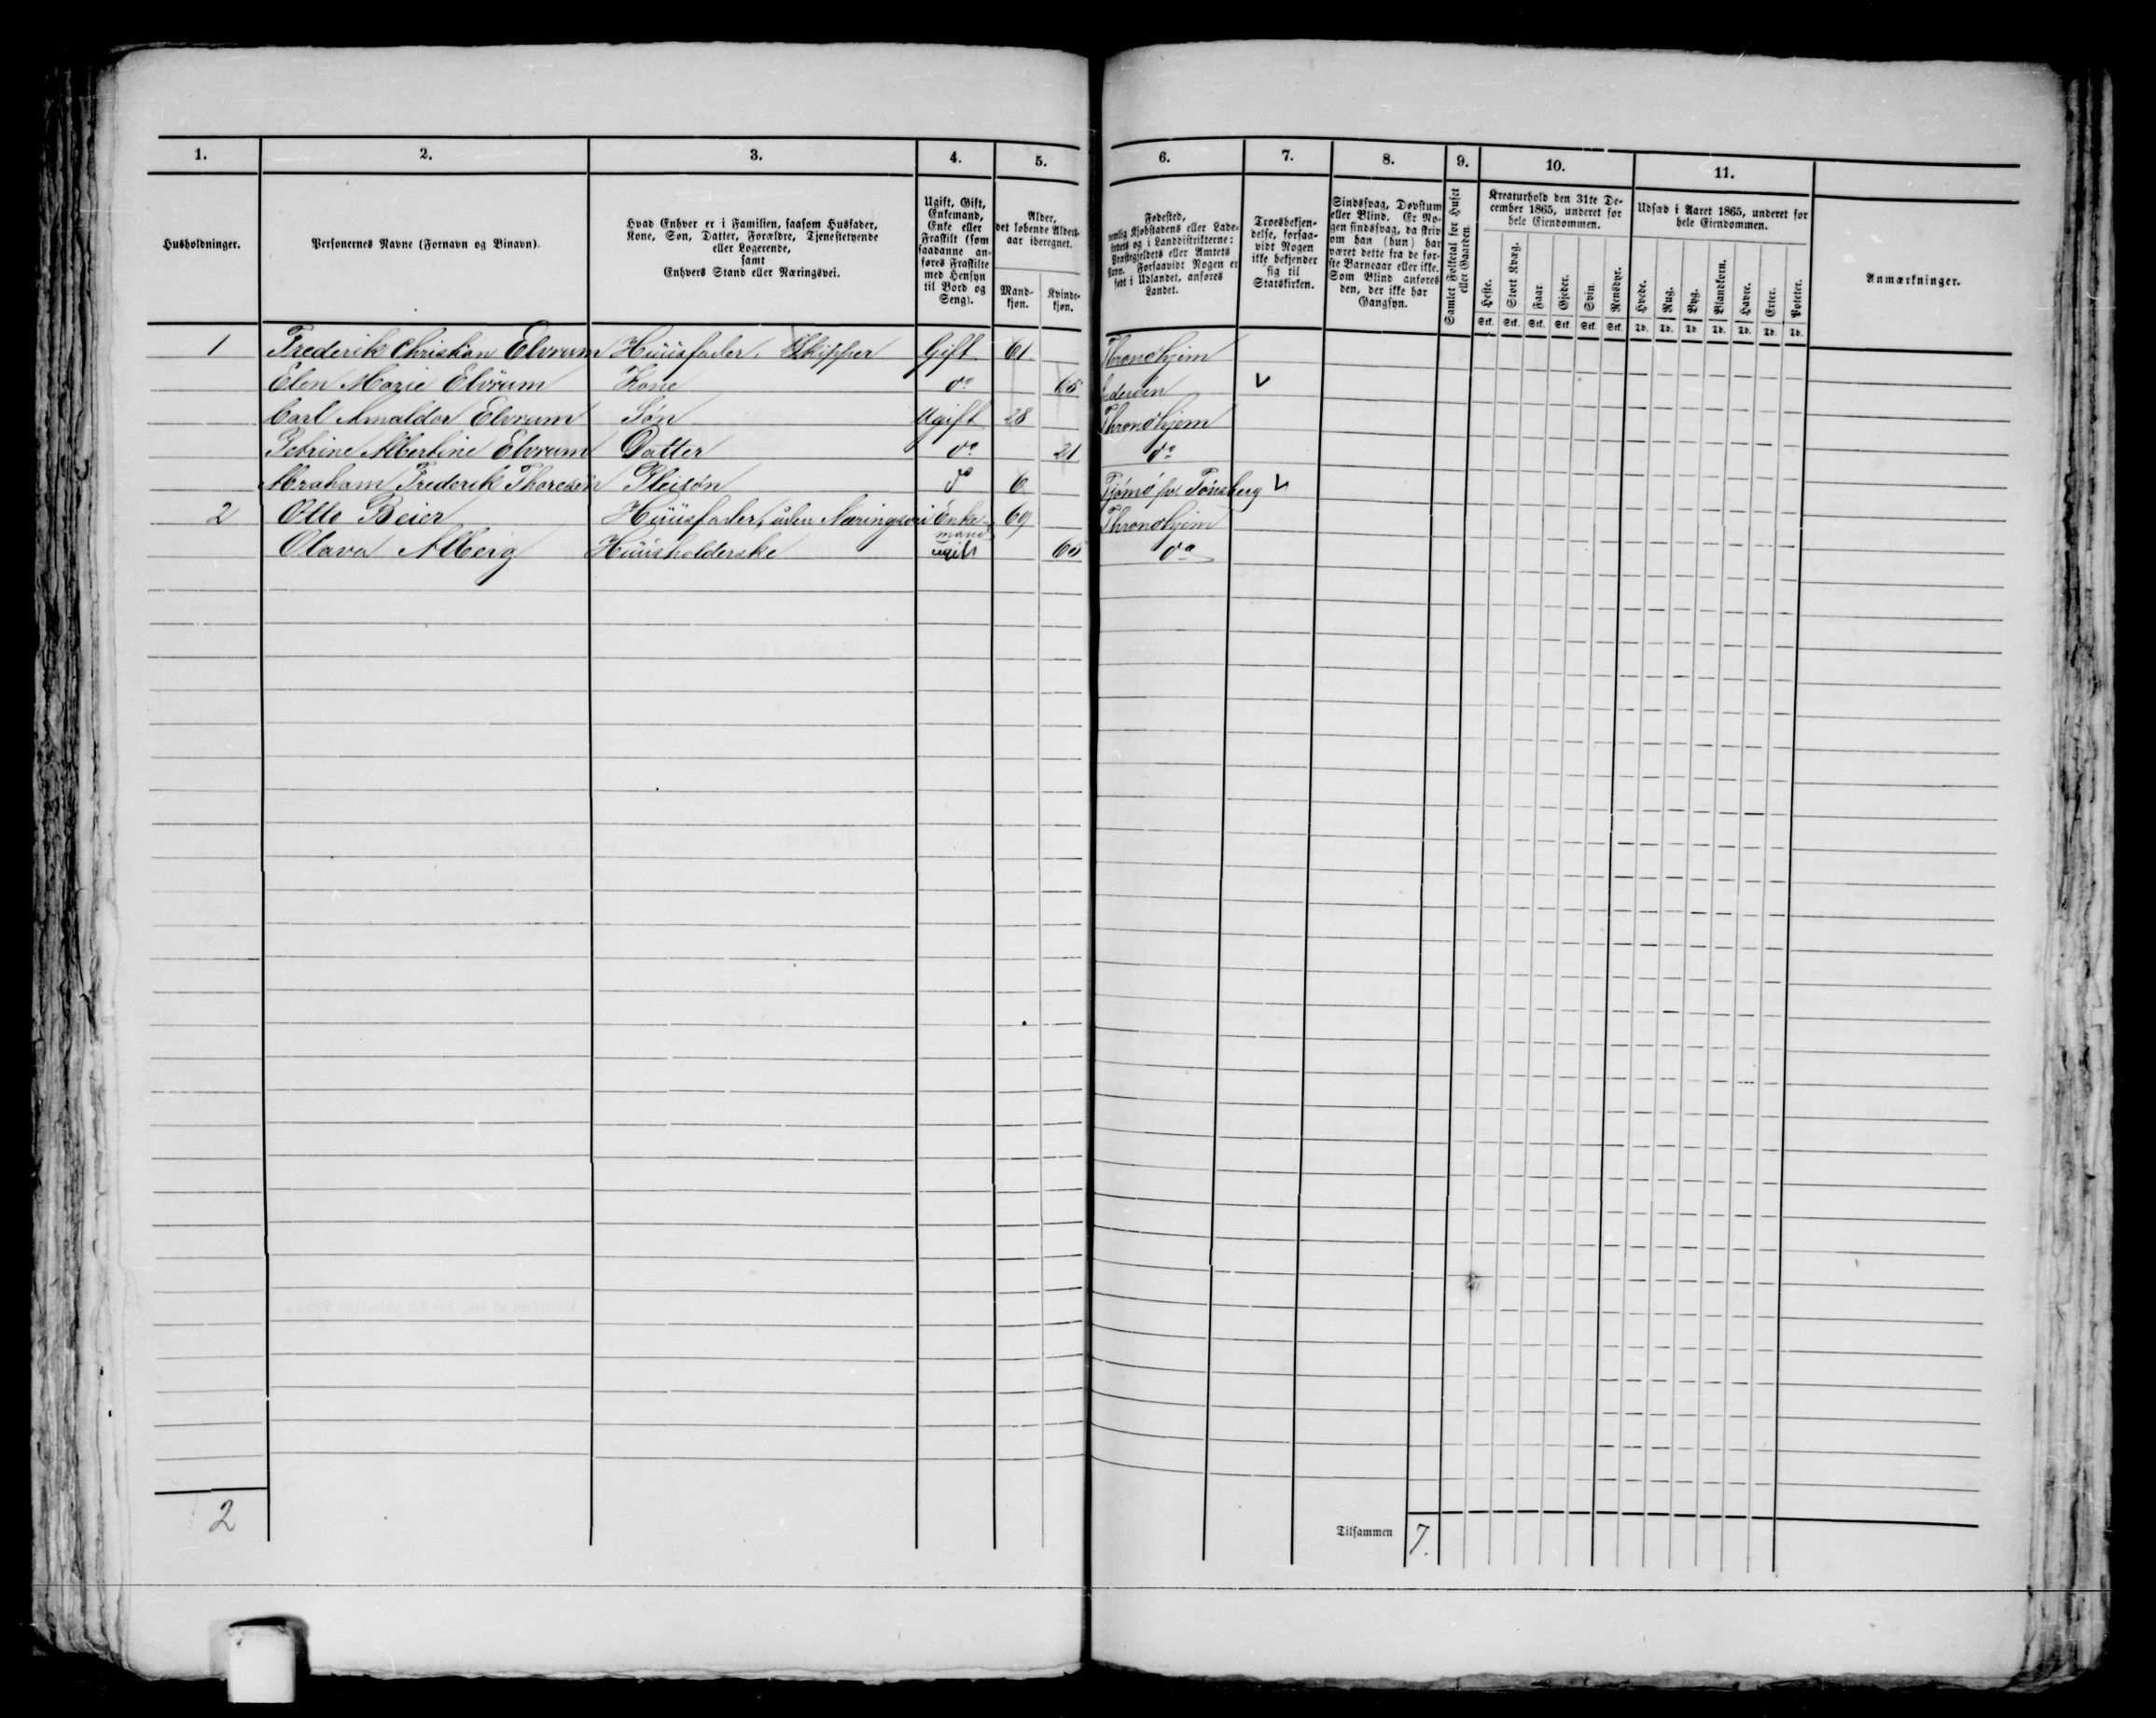 1. 2. 3. 4. 5. 6. 7. 8. 9. 10. 11.
Husholdninger.
Personernes Navne (Fornavn og Binavn).
Hvad Enhver er i Familien, saasom Husfader,
Kone, Søn, Datter, Forældre, Tjenestetyende
eller Logerende,
samt
Enhvers Stand eller Næringsvei.
Ugift, Gift,
Enkemand,
Enke eller
Fraskilt (som
saadanne an-
føres Fraskilte
med Hensyn
til Bord og
Seng).
Alder,
det løbende Alders-
aar iberegnet.
Mand-
kjøn.
Kvinde-
kjøn.
Fødested,
nemlig Kjøbstadens eller Lade-
stedets og i Landdistrikterne:
Præstegjeldets eller Amtets
Navn. Forsaavidt Nogen er
født i Udlandet, anføres
Landet.
Troesbekjen-
delse, forsaa-
vidt Nogen
ikke bekjender
sig til
Statskirken.
Sindssvag, Døvstum
eller Blind. Er No-
gen sindssvag, da skriv
om han (hun) har
været dette fra de før-
ste Barneaar eller ikke.
Som Blind anføres
den, der ikke har
Gangsyn.
Samlet Folketal for Huset
eller Gaarden.
Kreaturhold den 31te De-
cember 1865, underet for
hele Eiendommen.
Heste. Stort Kvæg. Faar. Gjeder. Svin. Rensdyr.
Stk. Stk. Stk. Stk. Stk. Stk.
Udsæd i Aaret 1865, underet for
hele Eiendommen.
Hvede. Rug. Byg. Blandkorn. Havre. Erter. Poteter.
Td. Td. Td. Td. Td. Td. Td.
Anmærkninger.
1 Frederik Christian Elvrum Huusfader, Skipper Gift 61 Throndhjem
Elen Marie Elvrum Kone do 65 Inderøen
Carl Arnaldor Elvrum Søn Ugift 28 Throndhjem
Petrine Albertine Elvrum Datter do 21 do
Abraham Frederik Thoresen Pleisøn do 6 Tjømø pr. Tønsberg
2 Otto Beier Huusfader, uden Næringsvei Enke-
mand 69 Throndhjem
Olava Alberg Huusholderske ugift 65 do
2
Tilsammen 7.